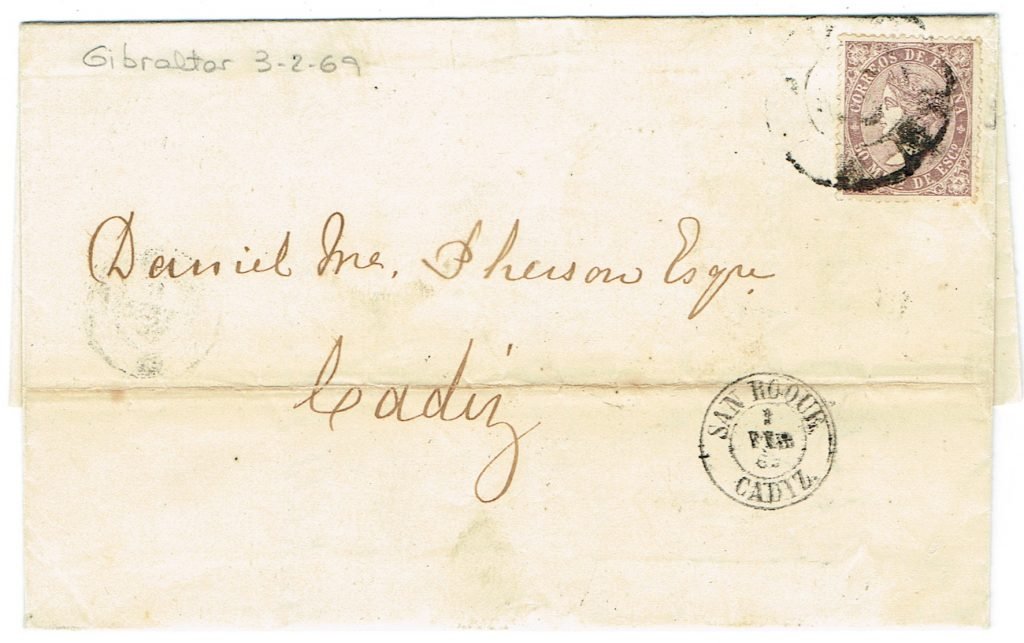 Gibraltar 3-2-69
CORREOS DE ESPAÑA
50 M DE ESCº
Daniel Mc. Pherson Esqre
Cadiz
SAN ROQUE
FEB
CADIZ.